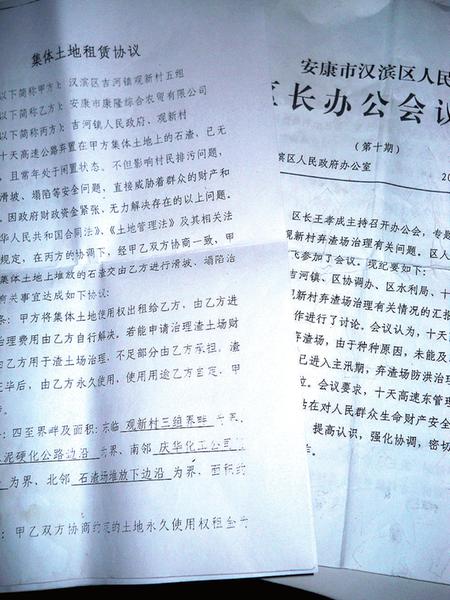 集体土地租赁协议
以下简称甲方）：汉滨区吉河镇观新村五组
以下简称乙方）：安康市康隆综合农贸有限公司
以下简称丙方）：吉河镇人民政府、观新村
十天高速公路弃置在甲方集体土地上的石渣，已无
，且常年处于闲置状态。不但影响村民排污问题，
滑坡、塌陷等安全问题，直接威胁着群众的财产和
。因政府财政资金紧张、无力解决存在的以上问题。
华人民共和国合同法》、《土地管理法》及其相关法
规定，在丙方的协调下，经甲乙双方协商一致，甲
集体土地上堆放的石渣交由乙方进行滑坡、塌陷治
有关事宜达成如下协议：
条：甲方将集体土地使用权出租给乙方，由乙方进
治理费用由乙方自行解决。若能申请治理渣土场财
由乙方用于渣土场治理，不足部分由乙方承担。渣
毕后，由乙方永久使用，使用用途乙方自定，甲
：四至界畔及面积：东临 观新村三组界畔 为界、
泥硬化公路边沿 为界、南邻 庆华化工公司
为界、北邻 石渣场堆放下边沿 为界，面积约
：甲乙双方协商约定的土地永久使用权租金
安康市汉滨区人民
区长办公会议
（第十期）
滨区人民政府办公室 20
区长王孝成主持召开办公会，专题
观新村弃渣场治理有关问题。区人
飞参加了会议。现纪要如下：
吉河镇、区协调办、区水利局、十
观新村弃渣场治理有关情况的汇报
作进行了讨论。会议认为，十天高
弃渣场，由于种种原因，未能及
已进入主汛期，弃渣场防洪治理
位。会议要求，十天高速东管理
站在对人民群众生命财产安全
提高认识，强化协调，密切